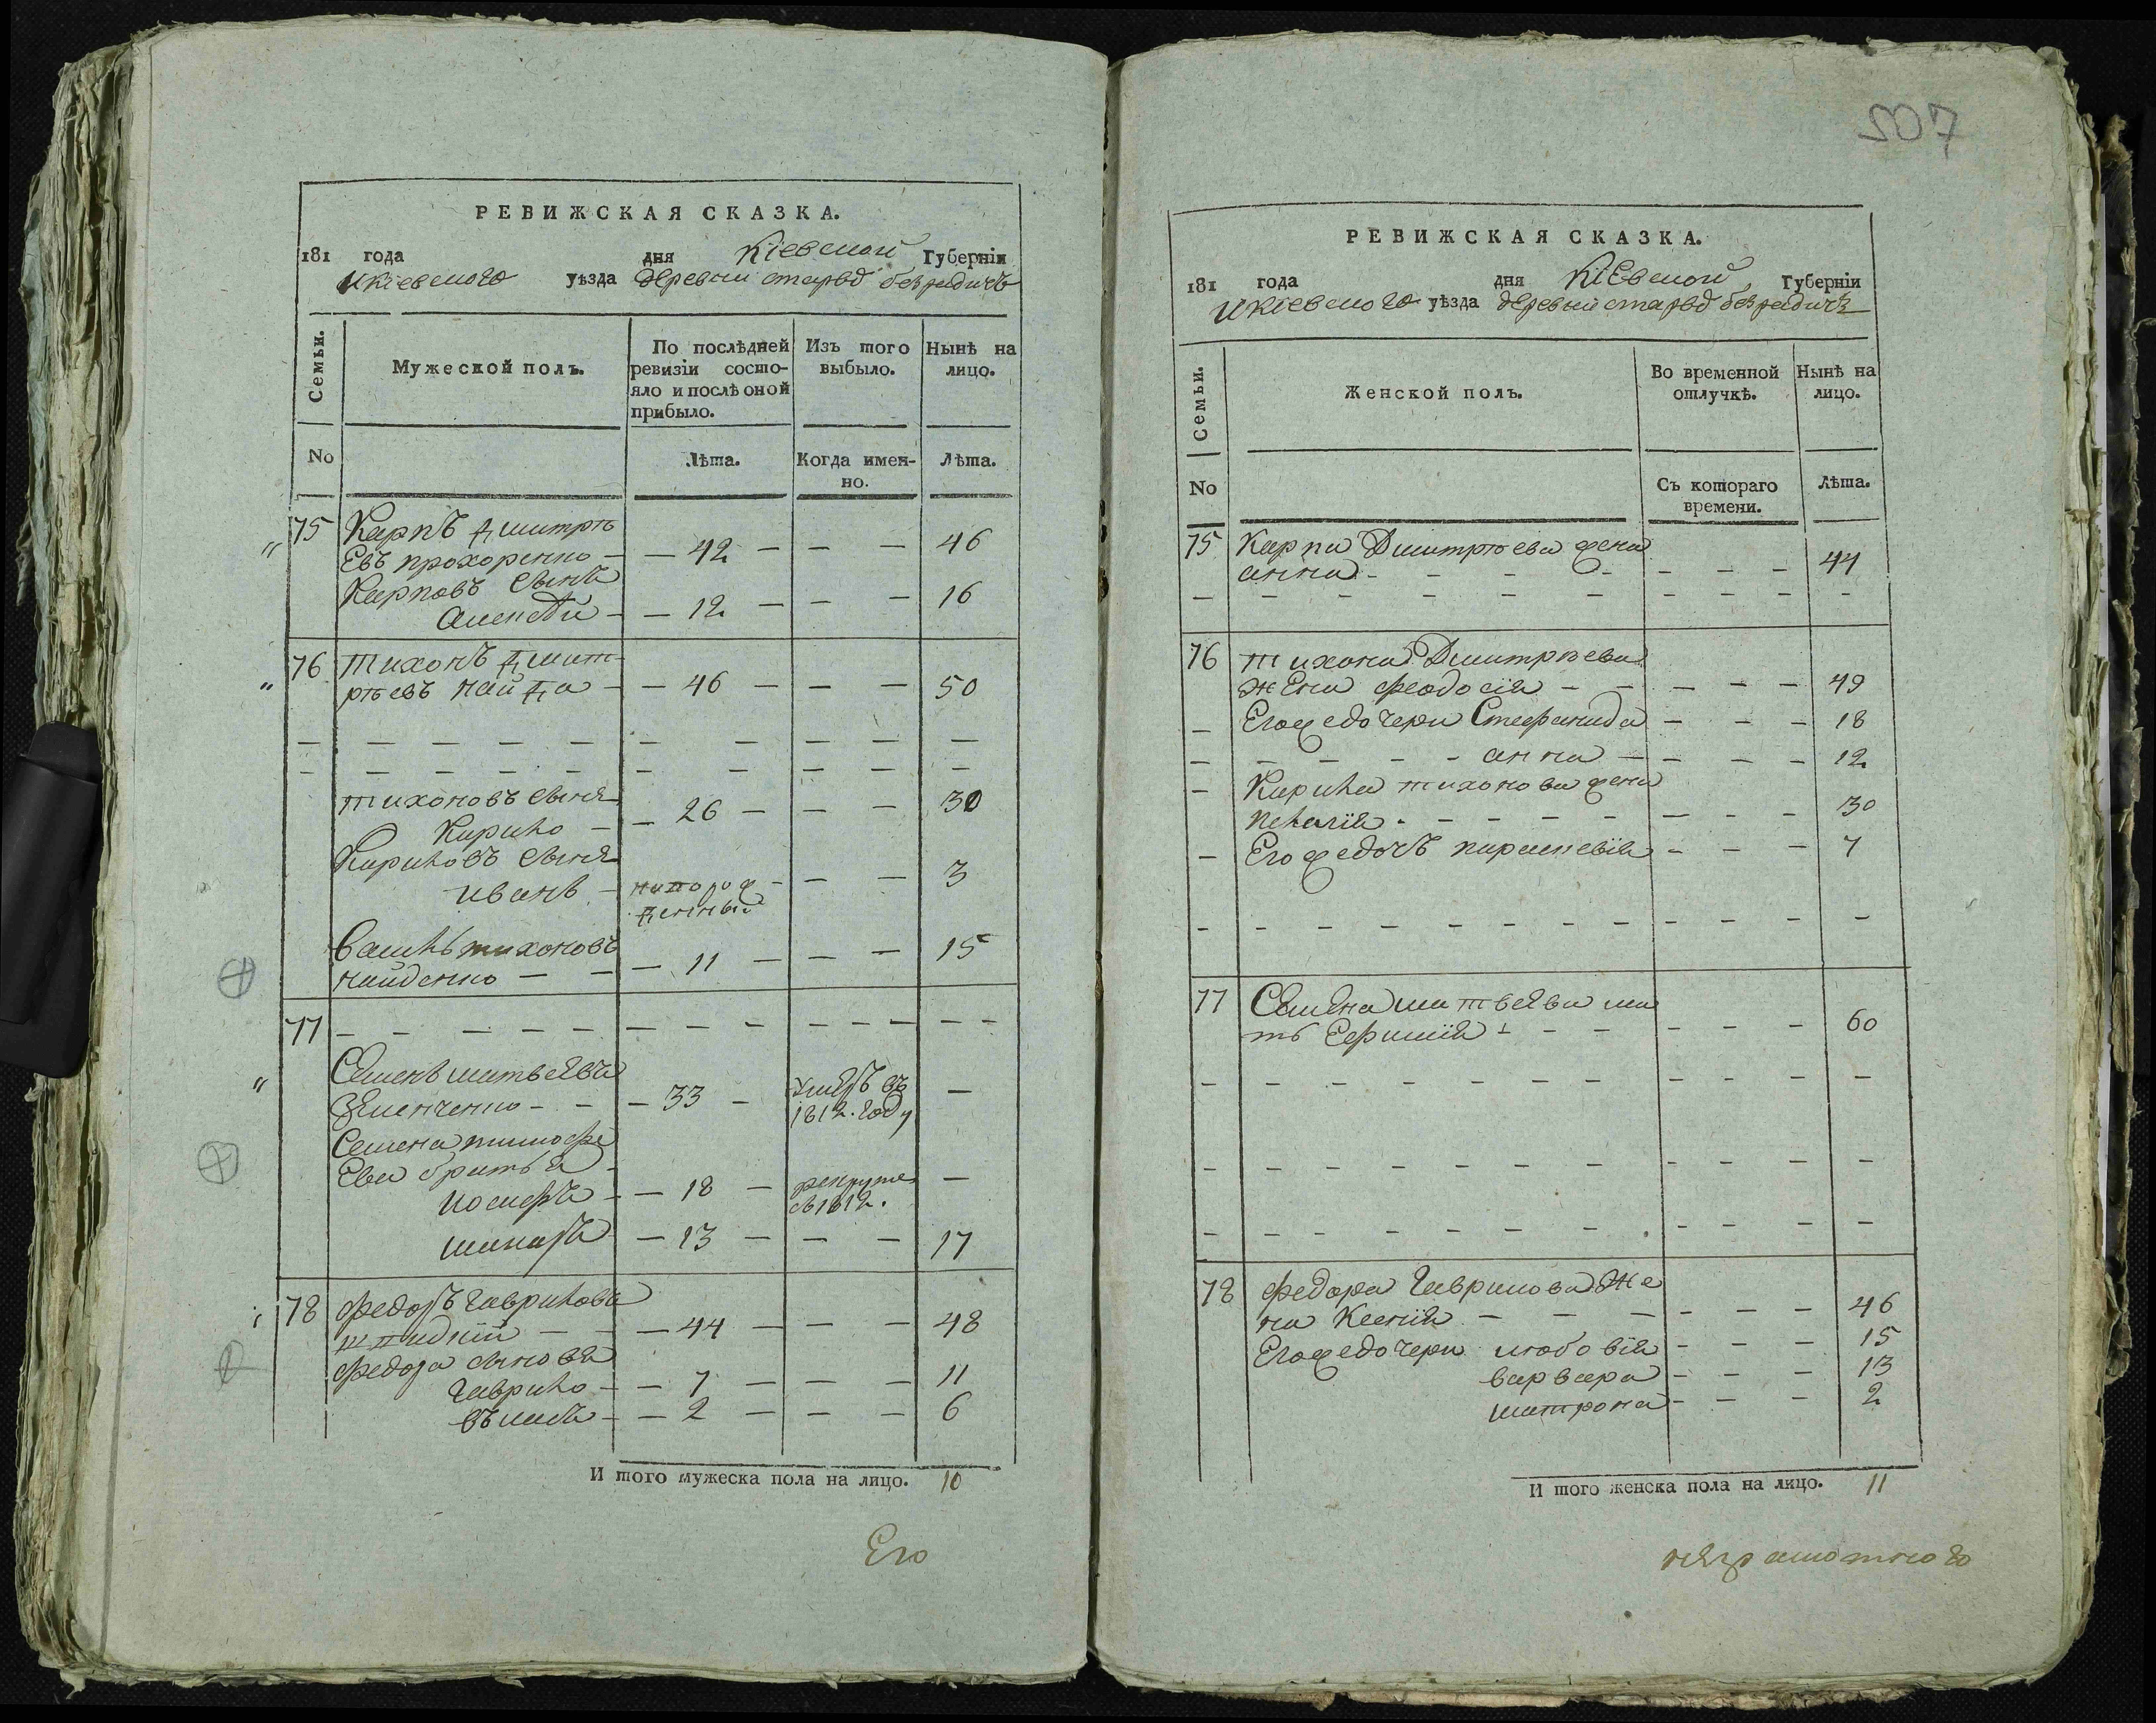 РЕВИЖСКАЯ СКАЗКА.
181 года дня Кіевской Губерніи
и кіевского уѣзда деревни старыхъ безрадичъ
Семьи.
Мужеской полъ.
По послѣдней ревизіи состо-
яло и послѣ оной
прибыло.
Изъ того
выбыло.
Нынѣ на
лицо.
No
Лѣта.
Когда имен-
но.
Лѣта.
75 Карпъ Дмитрѣ
евъ прохоренко — 42 — — — 46
Карповъ сынъ
алексѣй — 12 — — — 16
76 тихонъ Дмит-
рѣевъ найда — 46 — — — 50
тихоновъ сынъ
Кирило — 26 — — — 30
Кириловъ сынъ
иванъ — новорож
денный — — 3
Василь тихоновъ
найденко — 11 — — — 15
77
Семенъ матвѣевъ
33 — умеръ въ —
1812. году
Семена тимофе
ева братья
иосифъ — 18 — рекрутъ —
въ 1812.
макаръ — 13 — — — 17
78 федоръ гавриловъ
— 44 — — — 48
федора сыновья
гаврило — 7 — — — 11
— 2 — — — 6
И того мужеска пола на лицо. 10
Его
207
РЕВИЖСКАЯ СКАЗКА.
181 года дня Кіевской Губерніи
и кіевского уѣзда деревни старыхъ безрадичъ
Семьи.
Женской полъ.
Во временной
отлучкѣ.
Нынѣ на
лицо.
No
Съ котораго
времени.
Лѣта.
75 Карпа Дмитрѣева жена
анна — — — 44
76 тихона Дмитрѣева
жена феодосія — — — 49
Его же дочери Стефанида — — — 18
анна — — — 12
Кирила тихонова жена
пелагія — — — 30
Его же дочь параскевія — — — 7
77 Семена матвѣева ма
ть Ефимія — — — 60
78 федора гаврилова же
на Ксенія — — — 46
Его же дочери любовія — — — 15
варвара — — — 13
матрона — — 2
И того женска пола на лицо. 11
неграмотного